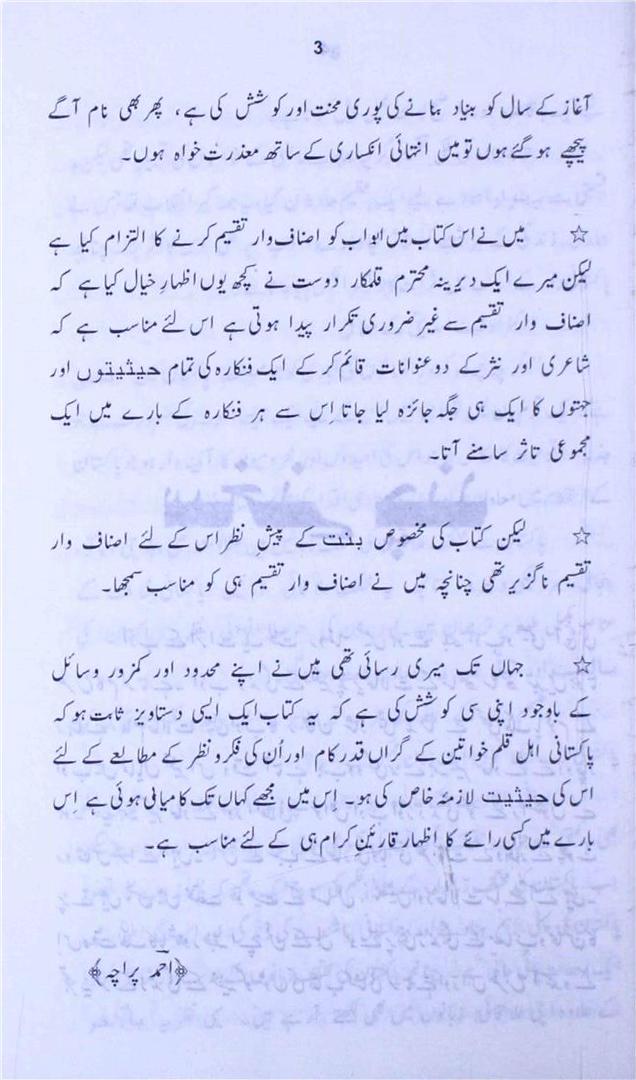 3
آغاز کے سال کو بنیاد بنانے کی پوری محنت اور کوشش کی ہے، پھر بھی نام آگے
پیچھے ہو گئے ہوں تو میں انتہائی انکساری کے ساتھ معذرت خواہ ہوں۔
☆ میں نے اس کتاب میں ابواب کو اصناف وار تقسیم کرنے کا التزام کیا ہے
لیکن میرے ایک دیرینہ محترم قلمکار دوست نے کچھ یوں اظہارِ خیال کیا ہے کہ
اصناف وار تقسیم سے غیر ضروری تکرار پیدا ہوتی ہے اس لئے مناسب ہے کہ
شاعری اور نثر کے دو عنوانات قائم کر کے ایک فنکارہ کی تمام حیثیتوں اور
جہتوں کا ایک ہی جگہ جائزہ لیا جاتا اِس سے ہر فنکارہ کے بارے میں ایک
مجموعی تاثر سامنے آتا۔
☆ لیکن کتاب کی مخصوص بنت کے پیشِ نظر اس کے لئے اصناف وار
تقسیم ناگزیر تھی چنانچہ میں نے اصناف وار تقسیم ہی کو مناسب سمجھا۔
☆ جہاں تک میری رسائی تھی میں نے اپنے محدود اور کمزور وسائل
کے باوجود اپنی سی کوشش کی ہے کہ یہ کتاب ایک ایسی دستاویز ثابت ہو کہ
پاکستانی اہل قلم خواتین کے گراں قدر کام اور اُن کی فکر و نظر کے مطالعے کے لئے
اس کی حیثیت لازمۂ خاص کی ہو۔ اِس میں مجھے کہاں تک کامیابی ہوئی ہے اس
بارے میں کسی رائے کا اظہار قارئینِ کرام ہی کے لئے مناسب ہے۔
﴿احمد پراچہ﴾